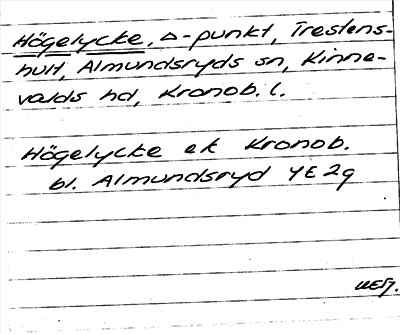 Högelycke, △-punkt, Trestens-
hult, Almundsryds sn, Kinne-
valds hd, Kronob. l.
Högelycke ek Kronob.
bl. Almundsryd 4E 2g